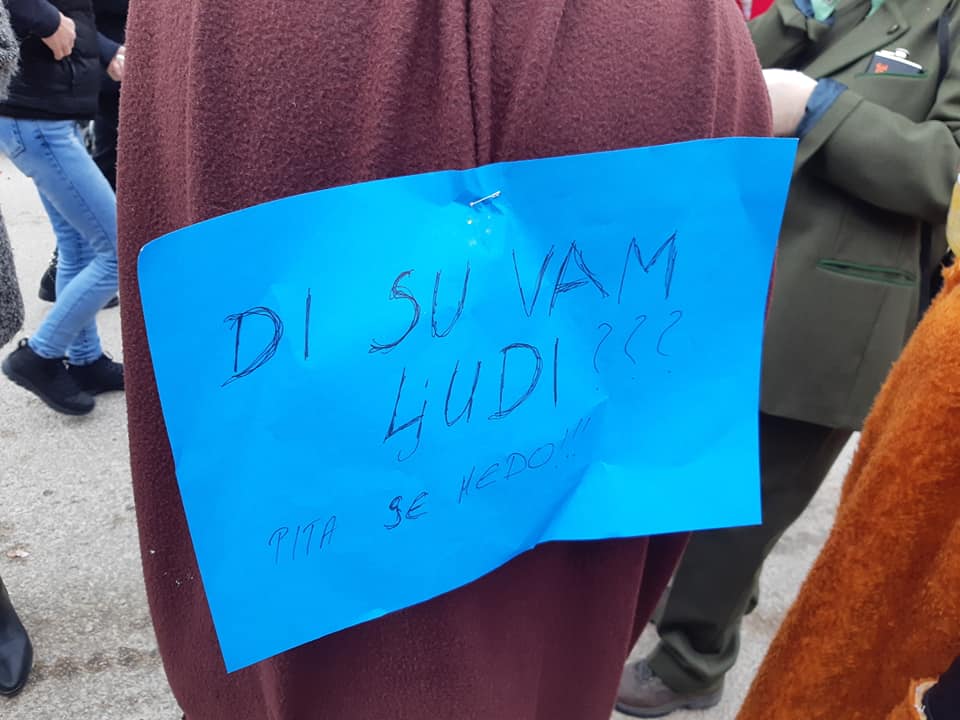 DI SU VAM
LjUDI???
PITA SE NEDO!!!